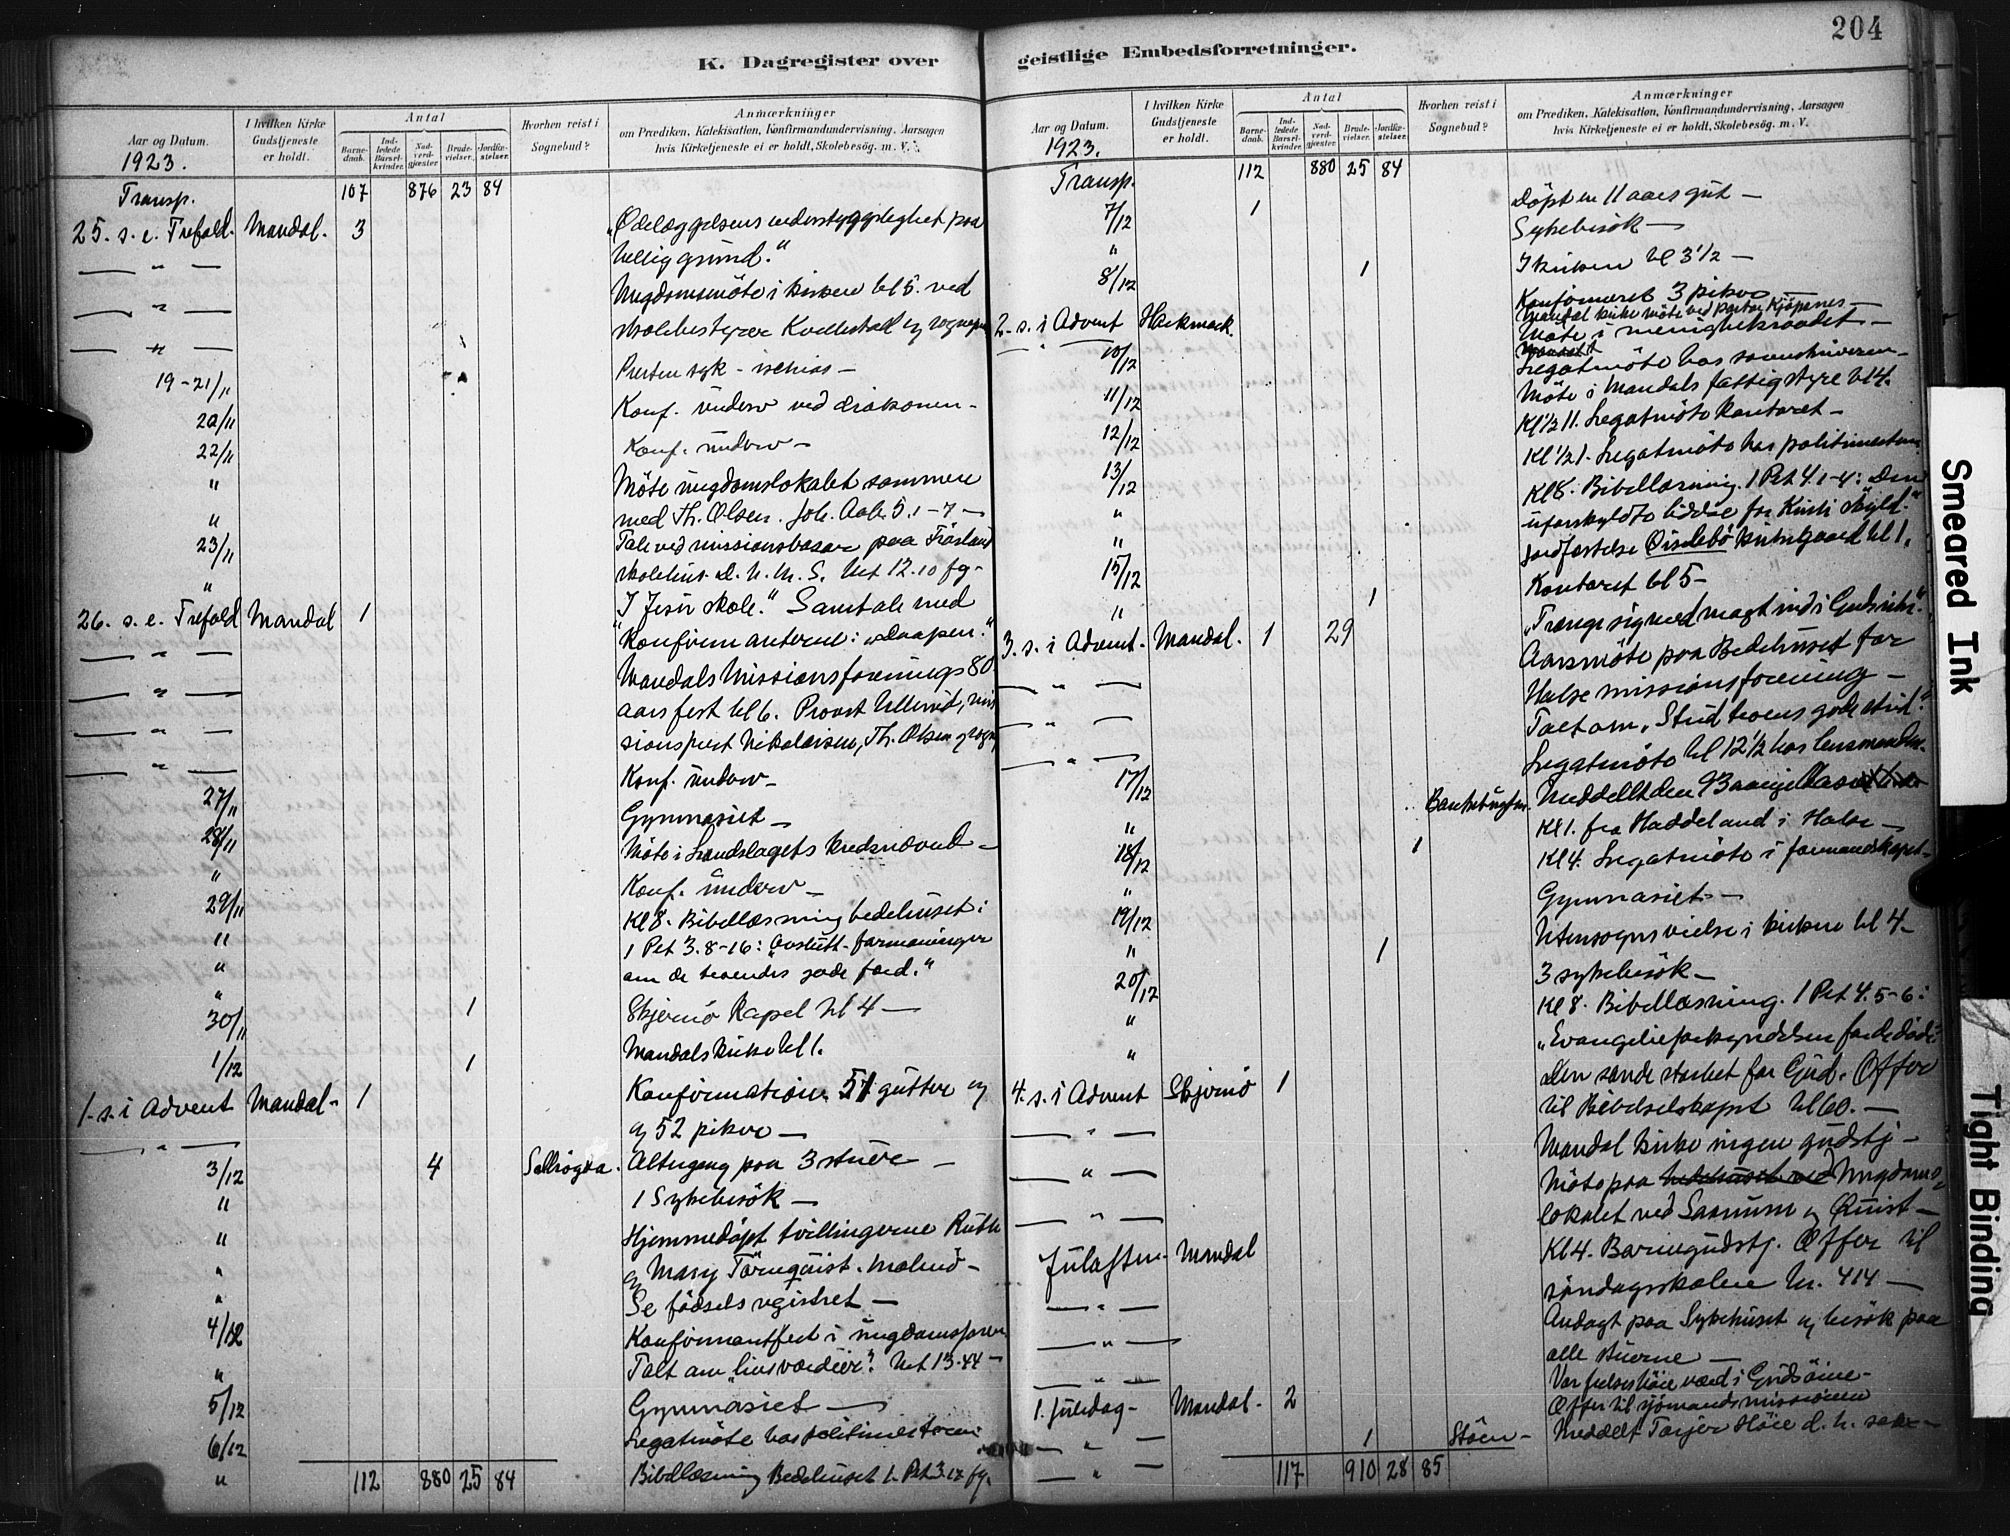 204
K. Dagregister over geistlige Embedsforretninger.
Aar og Datum.
1923.
I hvilken Kirke Gudstjeneste er holdt.
Antal
Barnedaab.
Indledede Barselkvinder.
Nadverdgjæster.
Brudevielser.
Jordfæstelser.
Hvorhen reist i Sognebud?
Anmærkninger
om Prædiken, Katekisation, Konfirmandundervisning, Aarsagen
hvis Kirketjeneste ei er holdt, Skolebesøg. m. V.
Transp. 107 876 23 84
25. s. e. Trefold. Mandal. 3 "Ødelæggelsens vederstyggelighet paa
— " — hellig grund."
Ungdomsmöte i kirken kl 5. ved
— " — skolebestyrer
— " — Presten syk - ischias -
19-21/11 Konf. underv ved diakonen -
22/11 Konf. underv -
22/11 Möte ungdomslokalet sammen
" med Th. Olsen. Joh. Aab. 5.1-7 -
" Tale ved missionsbasar paa
23/11 skolehus. D. N. M. S. Net 12.10 fg-
" "I Jesu skole." Samtale med
26. s. e. Trefold Mandal 1 konfirmanterne: "Daapen."
— " — Mandals Missionsforenings 80
— " — aars fest kl 6. Provst Ullerud, mis
— " — sionsprest Nikolaisen, Th. Olsen
— " — Konf. underv -
27/11 Gymnasiet -
28/11 Möte i Landslagets kredsnævnd -
" Konf. underv -
29/11 Kl 8. Bibellæsning bedehuset:
" 1 Pet 3.8-16: "Avslutt. formaninger
" om de troendes gode færd."
" 1 Skjernö Kapel kl 4 -
30/11
1/12 1 Mandals kirke kl 1.
1. s. i Advent Mandal - 1 Konfirmation. 51 gutter og
— " — og 52 piker -
3/12 4 Altergang paa 3 stuer -
" 1 Sykebesök -
" Hjemmedöpt tvillingerne Ruth
" og Mary Törnquist. Malmö -
" Se födselsregistret -
4/12 Konfirmantfest i ungdomsforen
" Talt om "livsværdier". Net 13.44 -
5/12 Gymnasiet -
6/12 Legatmöte hos politimesteren
" 112 880 25 84 Bibellæsning Bedehuset 1. Pet 3.17 fg.
Aar og Datum.
1923.
I hvilken Kirke Gudstjeneste er holdt.
Antal
Barnedaab.
Indledede Barselkvinder.
Nadverdgjæster.
Brudevielser.
Jordfæstelser.
Hvorhen reist i Sognebud?
Anmærkninger
om Prædiken, Katekisation, Konfirmandundervisning, Aarsagen
hvis Kirketjeneste ei er holdt, Skolebesög. m. V.
Transp. 112 880 25 84
7/12 1 Döpt en 11 aars gut -
" Sykebesök -
8/12 1 I kirken kl 3½ -
Konfirmeret 3 piker -
Mandal kirke möte ved pastor
2. s. i Advent Harkmark. Möte i menighetsraadet -
10/12 Legatmöte hos sorenskriveren -
11/12 Möte i Mandals fattigstyre kl 4.
12/12 Kl ½ 11. Legatmöte kontoret -
13/12 Kl ½ 1. Legatmöte hos politimesteren
" Kl 8. Bibellæsning. 1 Pet 4.1-4: Den
uforskyldte lidelse for Kristi skyld."
" Jordfæstelse Öislebö kirkegaard kl 1.
15/12 1 Kontoret kl 5 -
3. s. i Advent. Mandal. 1 29 "Trænge sig med magt ind i Guds rike".
— " — Aarsmöte paa Bedehuset for
Halse missionsforening -
— " — Talt om "Strid troens gode strid."
17/12 Legatmöte kl 12½ hos lensmanden.
" Meddelt den
18/12 1 Kl 1. fra Haddeland i Halse -
" Kl 4. Legatmöte i formandskapet -
19/12 Gymnasiet -
" 1 Utensogns vielse i kirken kl 4 -
20/12 3 sykebesök -
" Kl 8. Bibellæsning. 1 Pet 4.5-6:
" "Evangelieforkyndelsen for de döde:
4. s. i Advent Skjernö 1 Den sande storhet for Gud. Offer
til Bibelselskapet kl 60. -
— " — Mandal kirke ingen gudstj -
— " — Möte paa bedehuset ved Ungdoms
lokalet ved Saanum og Quist -
Julaften - Mandal Kl 4. Barnegudstj. Offer til
söndagsskolen kr. 414 -
— " — Andagt paa Sykehuset og besök paa
alle stuerne -
1. Juledag - Mandal. 2 Offer til sjömandsmissionen
— " — 1 Stöen - Meddelt Tarjer Höie d. h. sakr -
— " — 117 910 28 85
Smeared Ink
Tight Binding